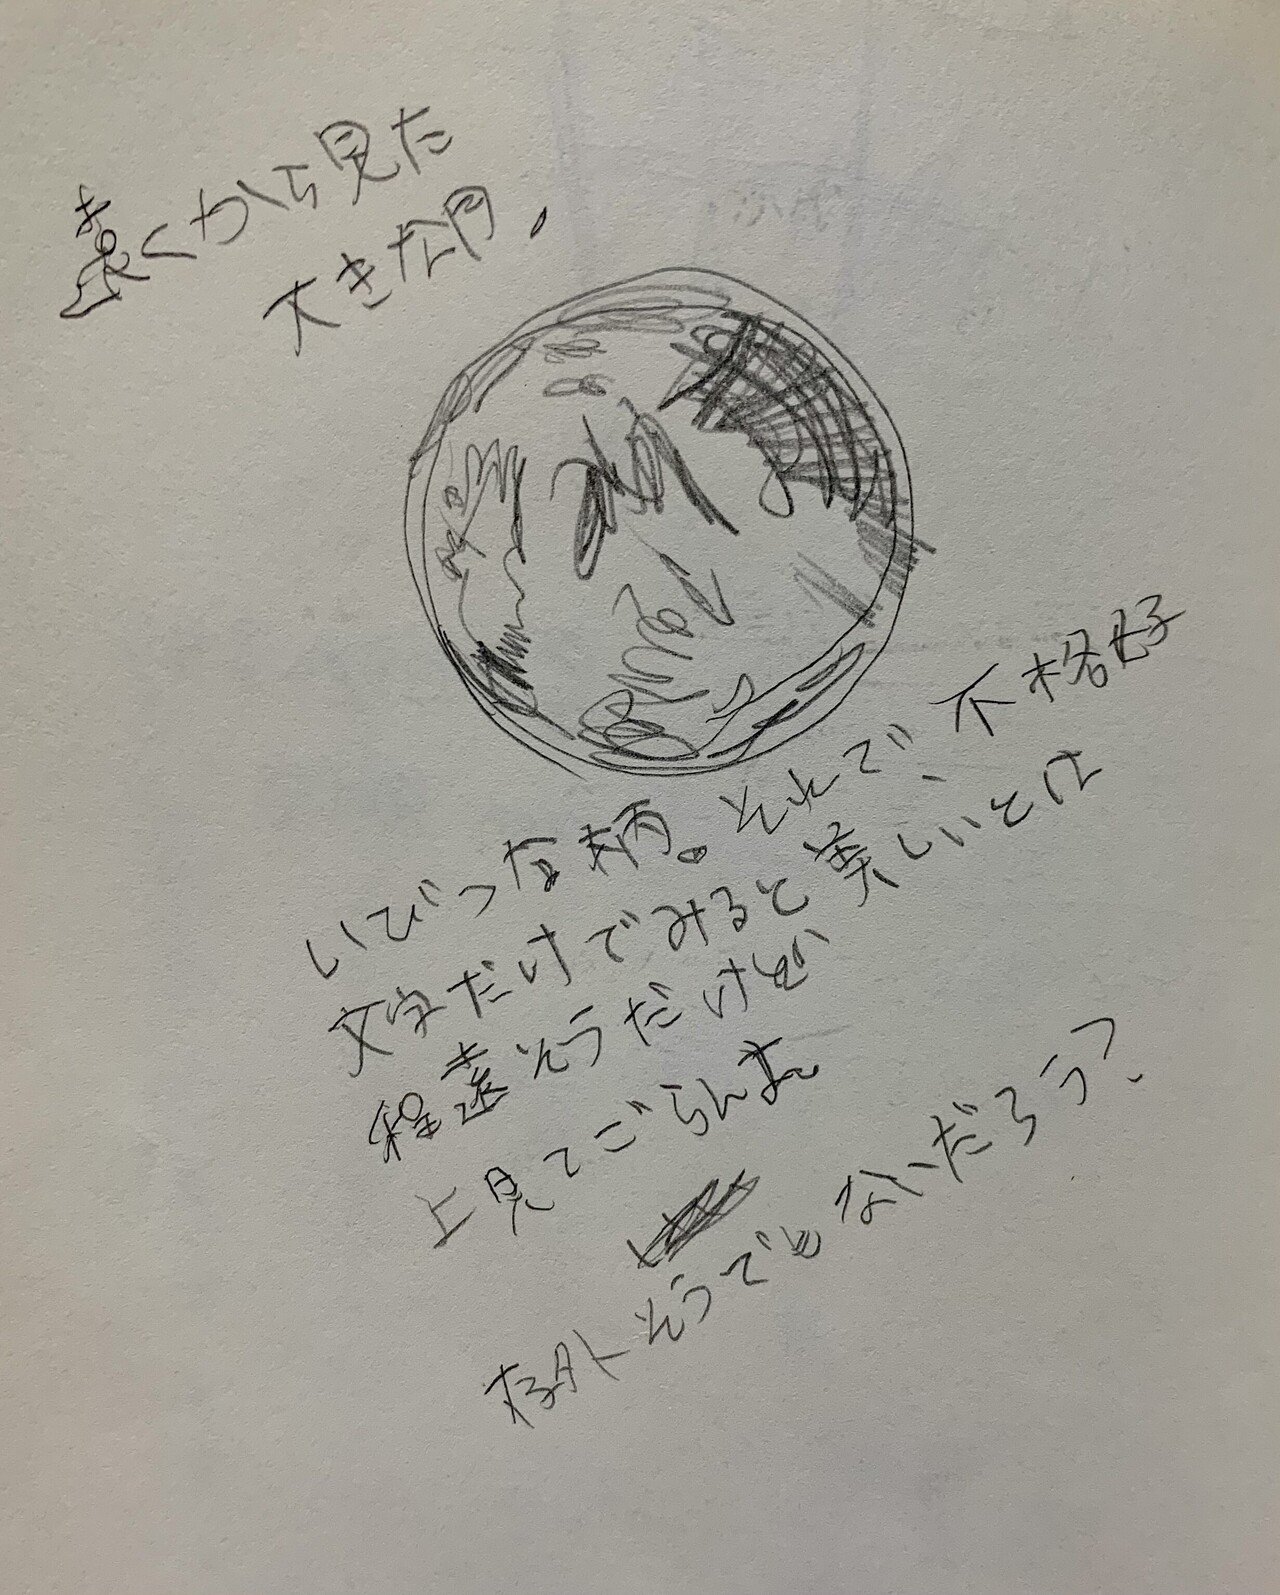 遠くから見た
大きな円。
いびつな柄。それで、不格好
文字だけでみると美しいとは
程遠そうだけど
上見てごらんよ
存外そうでもないだろう？